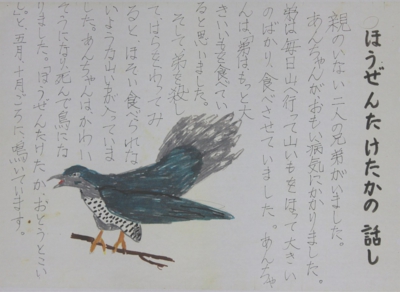 ほうぜんたけたかの話し
親のいない二人の兄弟がいました。
あんちゃんがおもい病気にかかりました。
弟は毎日山へ行って山いもをほって大きい
のばかり、食べさせていました。あんちゃ
んは、弟はもっと大
きいいもを食べてい
ると思いました。
そして弟を殺し
てはらをわってみ
るとほそい食べられな
いような山いもが入っていま
した。あんちゃんはかわい
そうになり死んで鳥にな
りました。「ほうぜんたけたかおとうとこい
と五月、十月ごろに鳴いています。